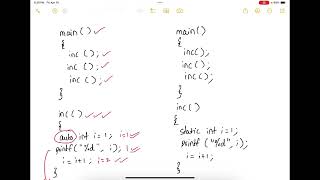 main()
{
inc();
inc();
inc();
}
inc()
{
auto int i=1; i=1
printf("%d", i); 1
i=i+1; i=2
}
main()
{
inc();
inc();
inc();
}
inc()
{
static int i=1;
printf("%d", i);
i=i+1;
}